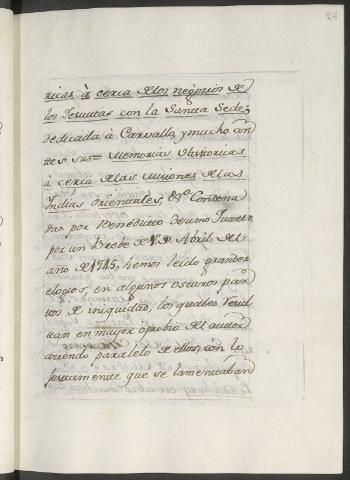 24
ricas à cerca de los negocios de
los Jesuitas con la Santa Sede,
dedicada à Carvallo, y mucho an
tes sus = Memorias Historicas
à cerca de las misiones de las
Indias orientales, &ª Condena
das por Benedicto Decimo Quarto,
por un Brebe de de Abril del
año de 1745, hemos leido grandes
elogios, en algunos oscuros par
tos de iniquidad, los quales resul
tan en mayor oprobio del autor
aviendo paralelo de ellos, con lo
justamente que se lamentaban